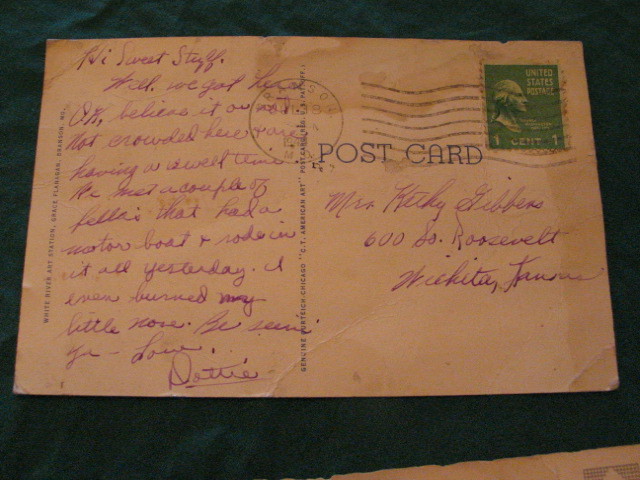 Hi Sweet Stuff.
Well, we got here
O.K. believe it or not.
Not crowded here & are
having a swell time.
We met a couple of
fellas that had a
motor boat & rode in
it all yesterday. I
even burned my
little nose. Be seein'
ya - Love,
Dottie
WHITE RIVER ART STATION, GRACE FLANAGAN, BRANSON, MO.
GENUINE CURTEICH-CHICAGO "C.T. AMERICAN ART" POST CARD (REG. U.S. PAT. OFF.)
BRANSON
UNITED
STATES
POSTAGE
1 CENT 1
POST CARD
Mrs. Kathy Gibbens
600 So. Roosevelt
Wichita, Kansas